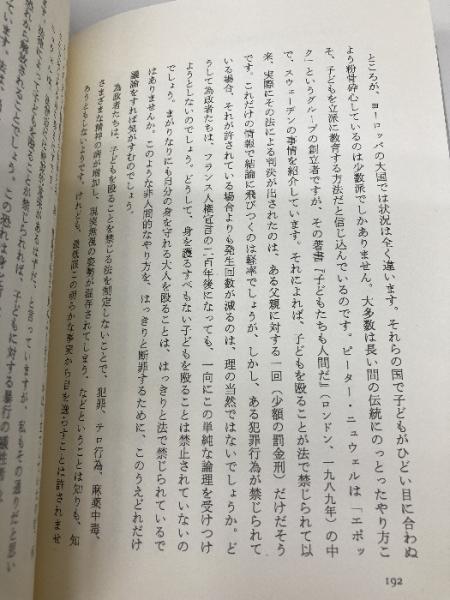 ところが、ヨーロッパの大国では状況は全く違います。それらの国で子どもがひどい目に合わぬ
よう粉骨砕心しているのは少数派でしかありません。大多数は長い間の伝統にのっとったやり方こ
そ、子どもを立派に教育する方法だと信じ込んでいるのです。ピーター・ニュウェルは「エポッ
ク」というグループの創立者ですが、その著書『子どもたちも人間だ』（ロンドン、一九八九年）の中
で、スウェーデンの事情を紹介しています。それによれば、子どもを殴ることが法で禁じられて以
来、実際にその法による判決が出されたのは、ある父親に対する一回（少額の罰金刑）だけだそう
です。これだけの情報で結論に飛びつくのは軽率でしょうが、しかし、ある犯罪行為が禁じられて
いる場合、それが許されている場合よりも発生回数が減るのは、理の当然ではないでしょうか。ど
うして為政者たちは、フランス人権宣言の二百年後になっても、一向にこの単純な論理を受けつけ
ようとしないのでしょう。どうして、身を護るすべもない子どもを殴ることは禁止されていないの
でしょう。まがりなりにも自分の身を守れる大人を殴ることは、はっきりと法で禁じられているで
はありませんか。このような非人間的なやり方を、はっきりと断罪するために、このうえどれだけ
議論をすれば気がすむのでしょう。
為政者たちは、子どもを殴ることを禁じる法を制定しないことで、犯罪、テロ行為、麻薬中毒、
さまざまな精神の病が増加し、現実無視の姿勢が温存されてしまう、などということは知りも、知
ろうともしないようです。けれども、最低限この明らかな事実から目を逸らすことは許されませ
192